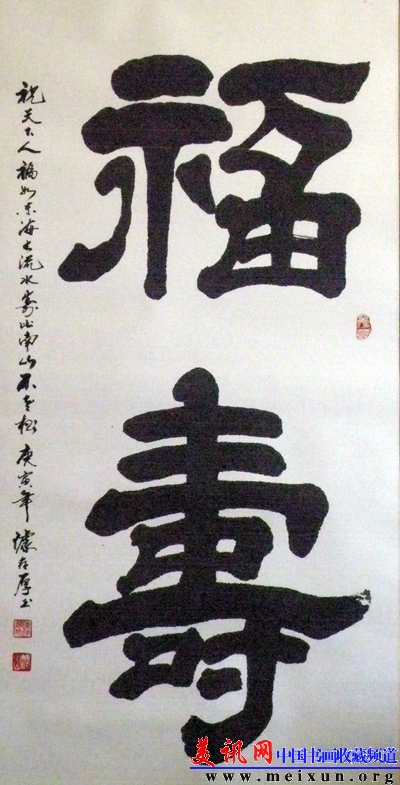 福
壽
祝天下人福如东海之流水寿比南山不老松 庚寅年 存厚书
美讯网 中国书画收藏频道
www.meixun.org